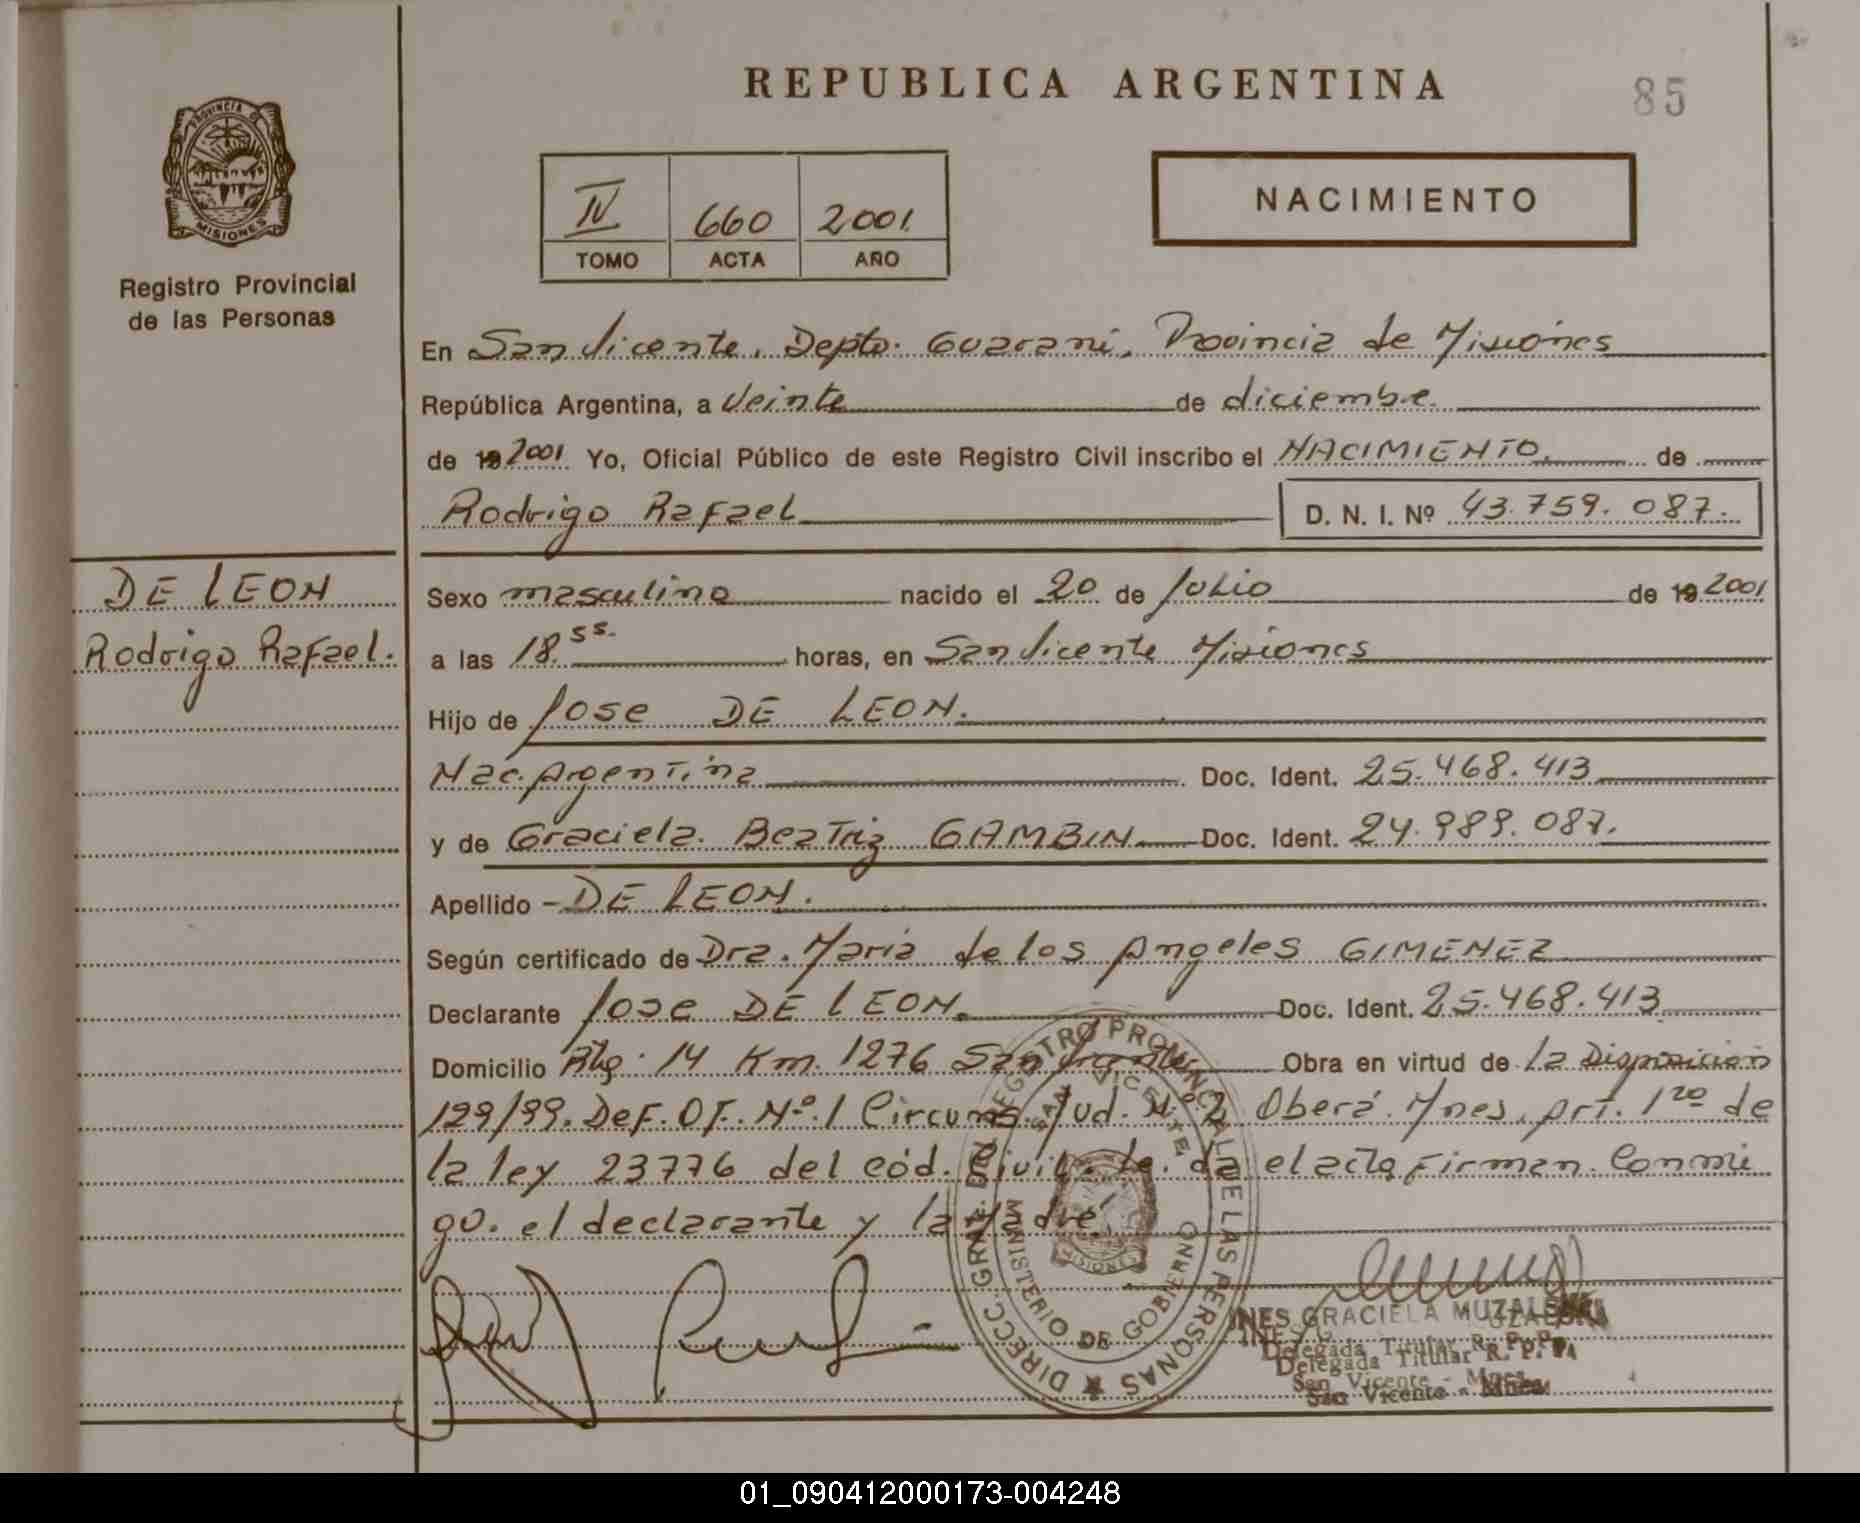 REPUBLICA ARGENTINA
85
PROVINCIA DE
MISIONES
Registro Provincial
de las Personas
IV 660 2001
TOMO ACTA AÑO
NACIMIENTO
En San Vicente, Depto. Guaraní, Provincia de Misiones
República Argentina, a Veinte de diciembre
de 19 2001 Yo, Oficial Público de este Registro Civil inscribo el NACIMIENTO. de
Rodrigo Rafael D. N. I. Nº 43.759.087.
DE LEON
Rodrigo Rafael.
Sexo masculino nacido el 20 de Julio de 19 2001
a las 18.55. horas, en San Vicente Misiones
Hijo de Jose DE LEON.
Nac. Argentina Doc. Ident. 25.468.413
y de Graciela Beatriz GAMBIN Doc. Ident. 24.989.087.
Apellido - DE LEON.
Según certificado de Dra. Maria de los Angeles GIMENEZ
Declarante Jose DE LEON. Doc. Ident. 25.468.413
Domicilio Rta. 14 Km. 1276 San Vicente Obra en virtud de la Disposición
129/99. Def. Of. Nº.1 Circuns. Jud. Nº 2 Oberá. Mnes, Art. 1ro de
la ley 23776 del cód. Civil. de el acta Firman Conmi
go. el declarante y la Madre.
DIRECC. GRAL. DEL REGISTRO PROVINCIAL DE LAS PERSONAS
SAN VICENTE
MINISTERIO DE GOBIERNO
MISIONES
INES GRACIELA
Delegada Titular R. P. P.
San Vicente - Mnes.
01_090412000173-004248